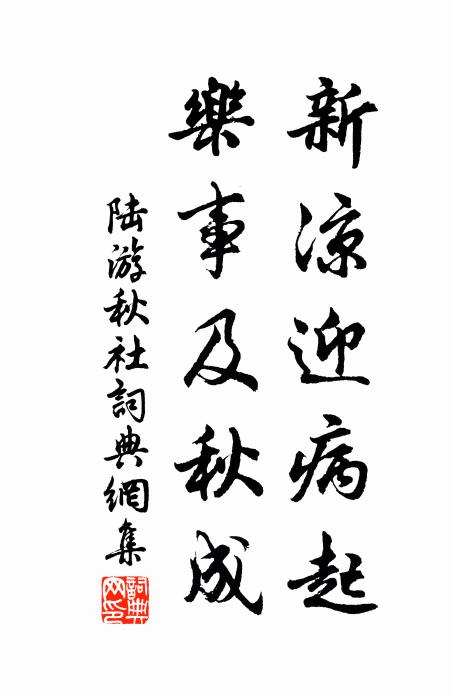 新涼迎病起
樂事及秋成
陆游秋社詞典網集
詞典